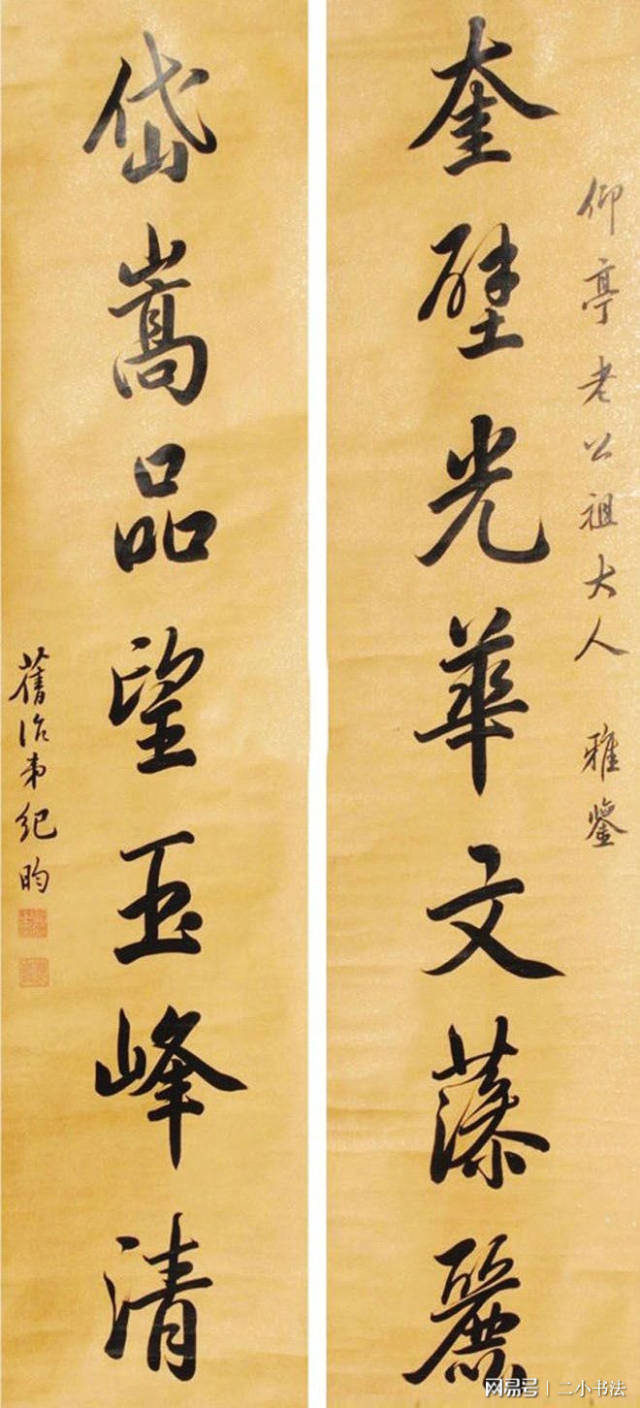 仰亭老公祖大人 雅鑒
奎壁光華文藻麗
岱嵩品望玉峰清
舊治弟紀昀
网易号 | 二小书法